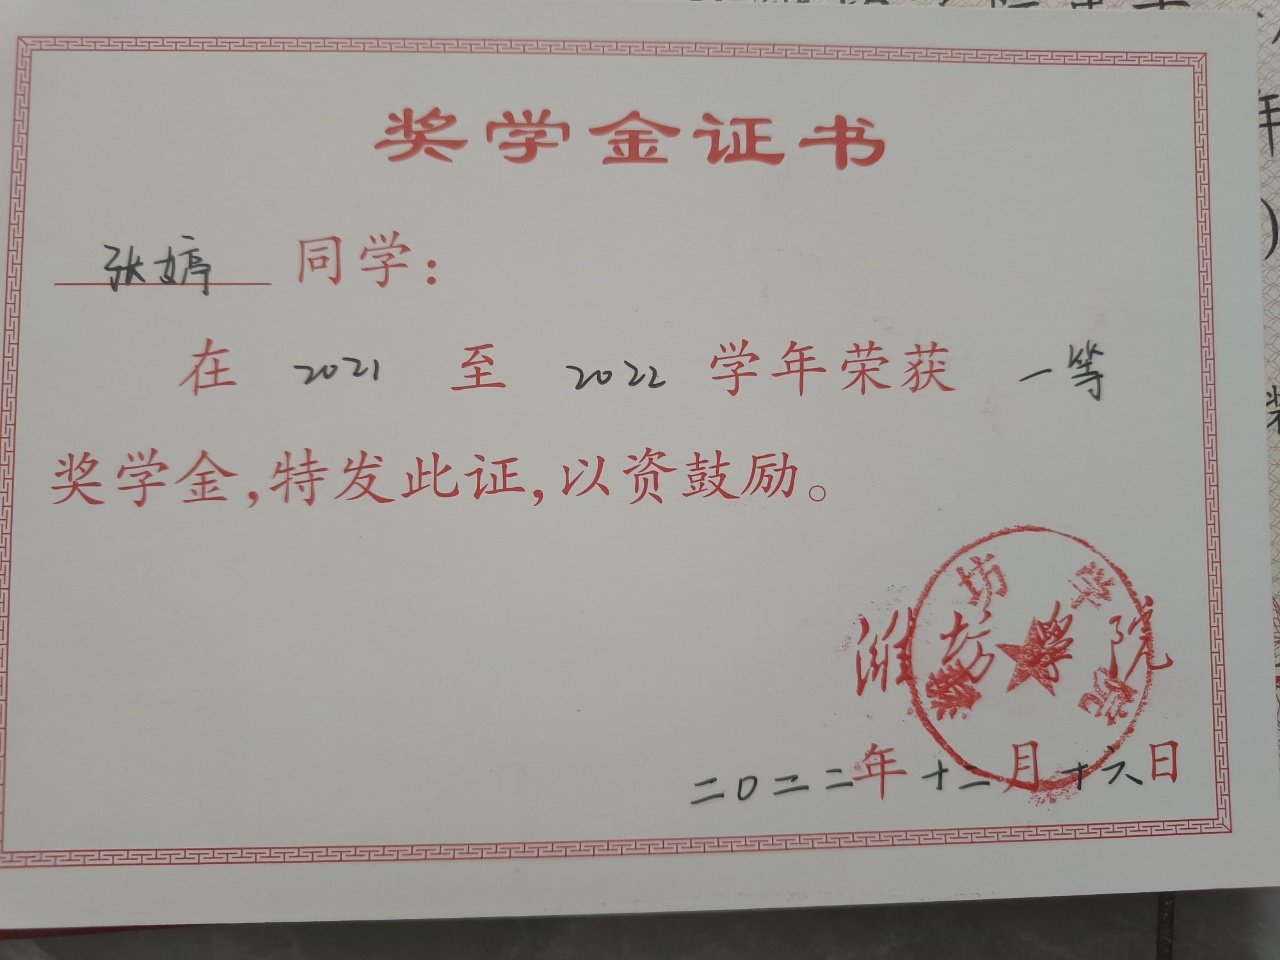 奖学金证书
张婷 同学：
在 2021 至 2022 学年荣获 一等
奖学金，特发此证，以资鼓励。
潍坊学院
潍坊学院
二〇二二年十二月十六日